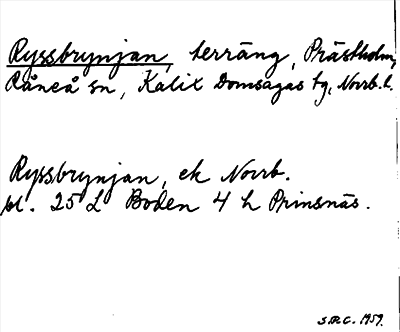 Ryssbrynjan, terräng, Prästholm,
Råneå sn, Kalix Domsagas tg, Norrb. l.
Ryssbrynjan, ek Norrb.
bl. 25 L Boden 4 h Prinsnäs.
S.R.C. 1959.